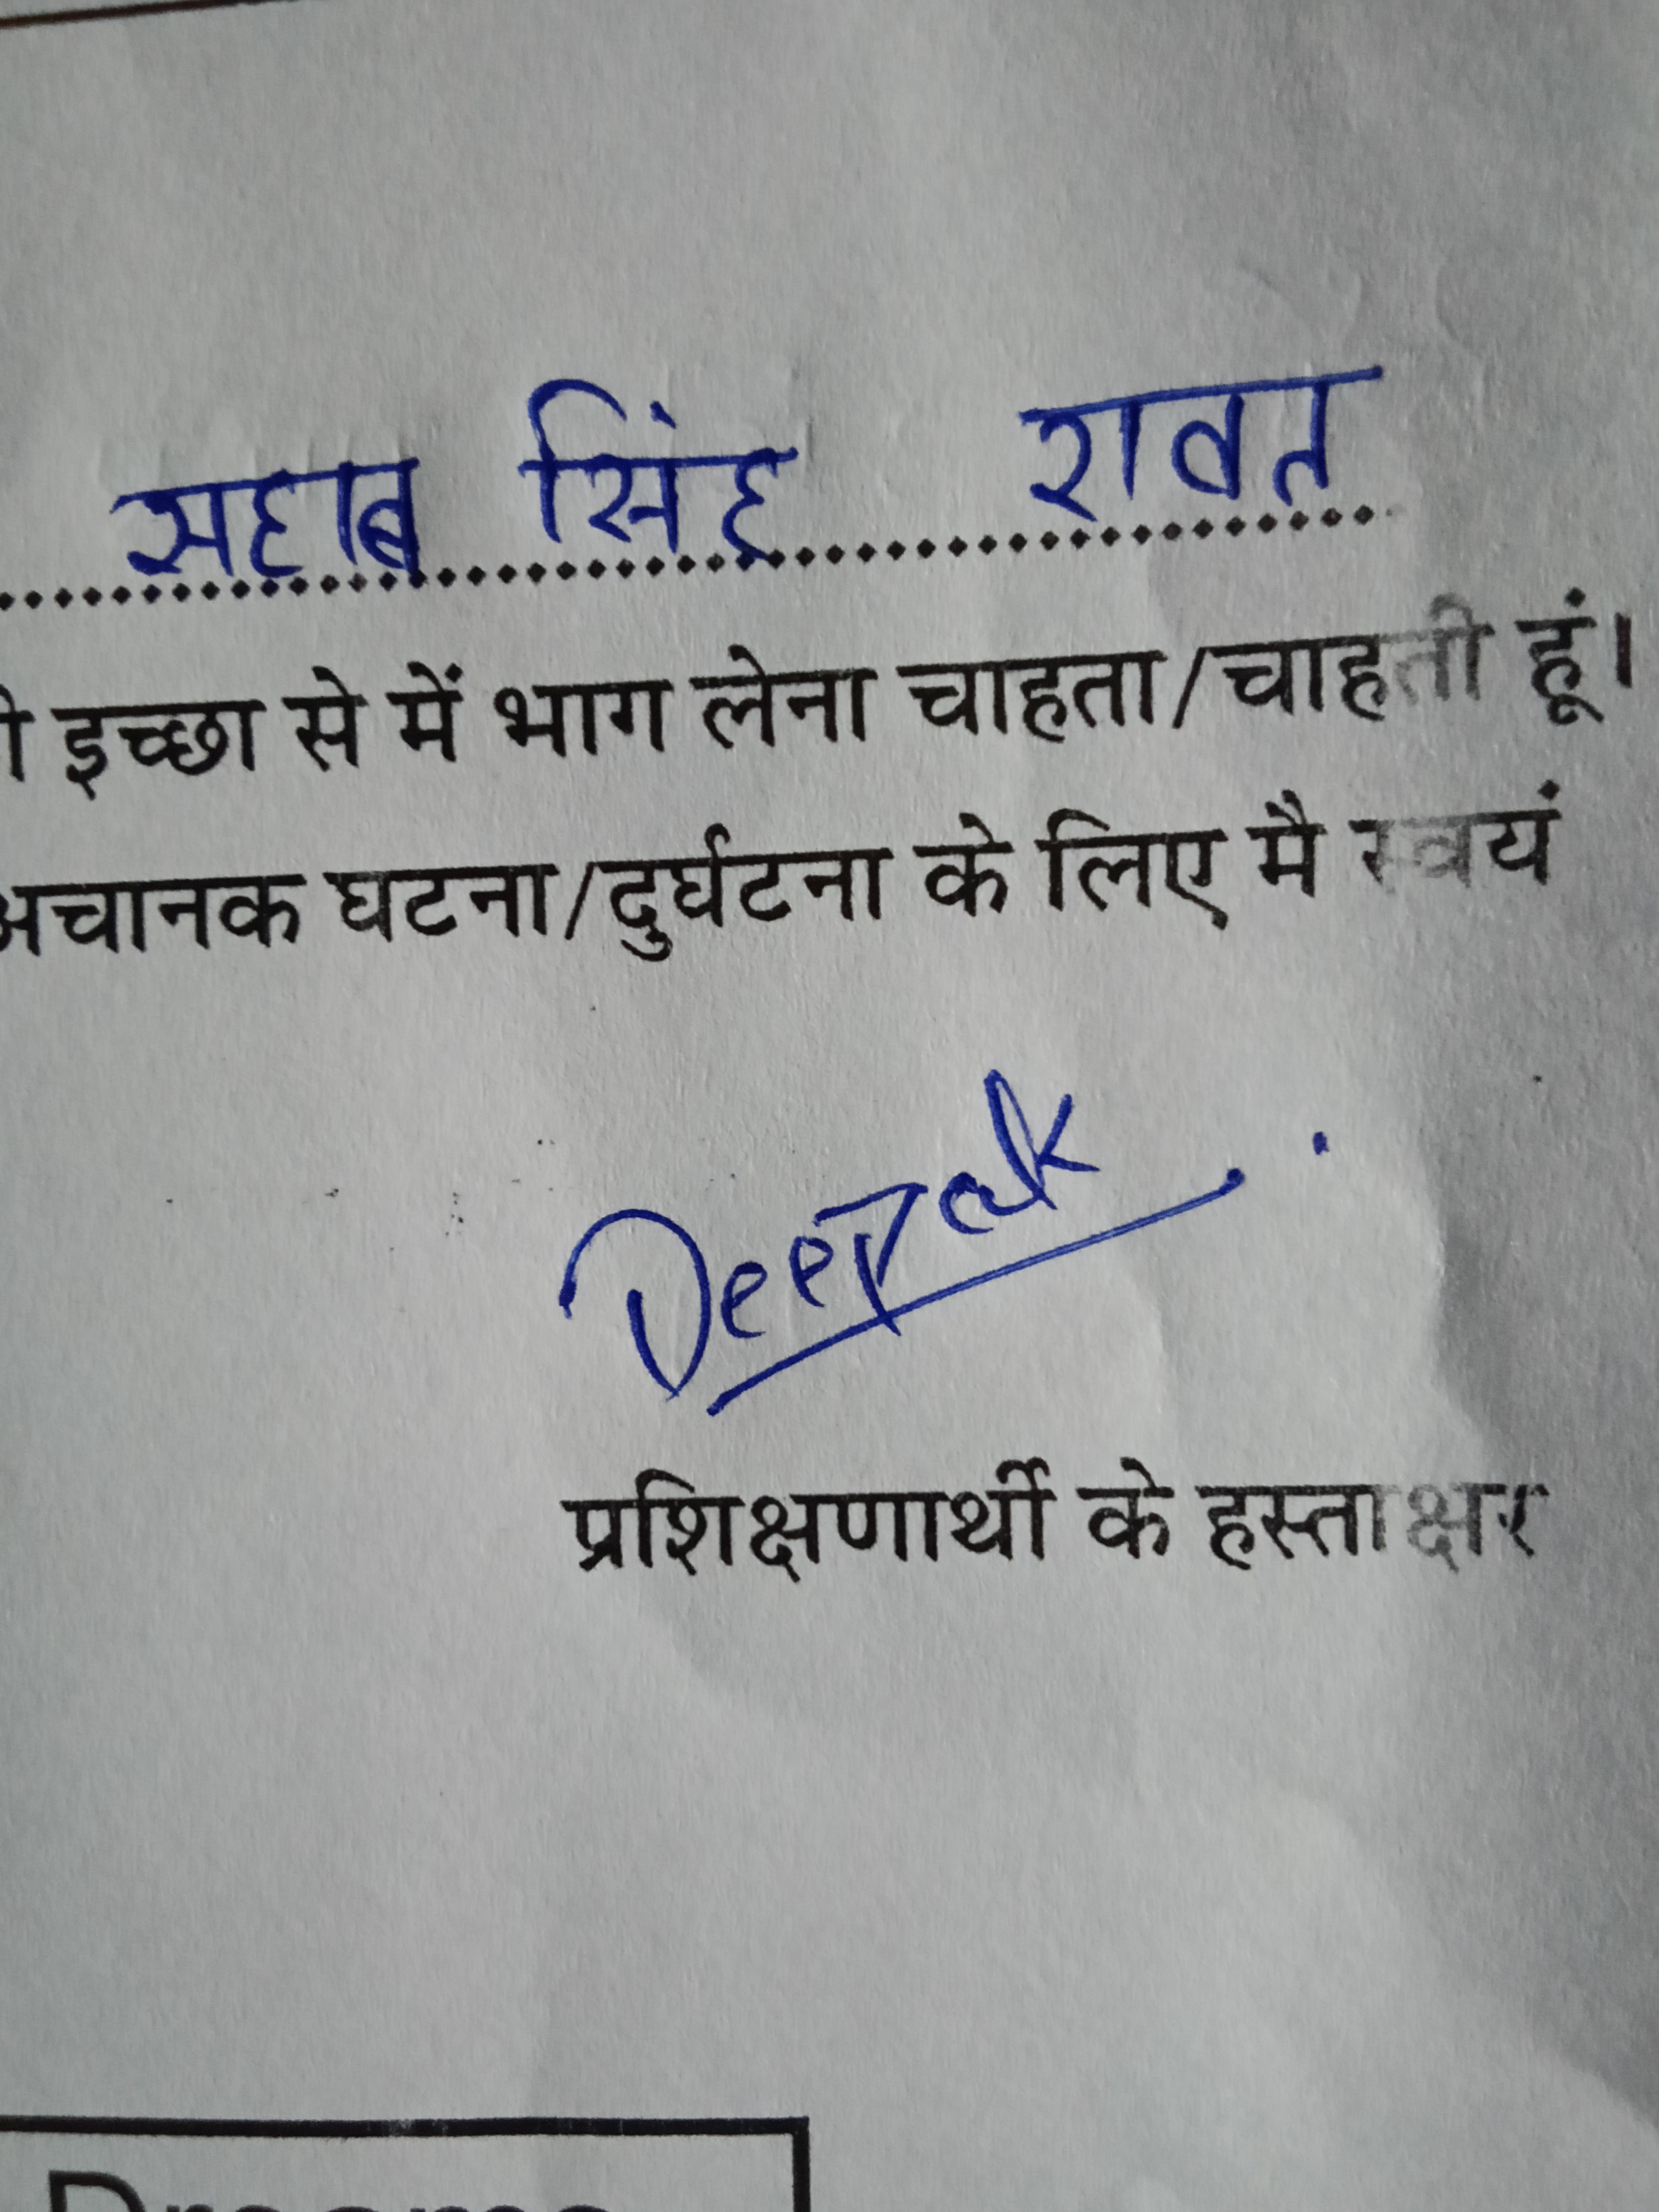 सहाब सिंह रावत
इच्छा से में भाग लेना चाहता/चाहती हूं।
अचानक घटना/दुर्घटना के लिए मै स्वयं
Deepak
प्रशिक्षणार्थी के हस्ताक्षर